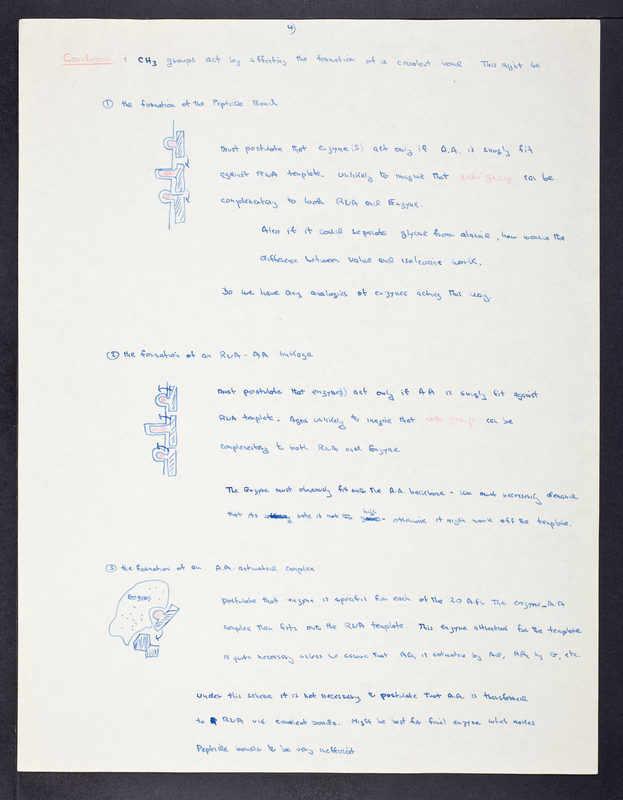 4)
Conclusion : CH3 groups act by affecting the formation of a covalent bond. This might be
① the formation of the Peptide Bond
Must postulate that enzyme(s) act only if A.A. is snugly fit
against RNA template. Unlikely to imagine that side group can be
complementary to both RNA and Enzyme.
Also if it could separate glycine from alanine, how would the
difference between valine and isoleucine work.
Do we have any analogies of enzymes acting this way.
② the formation of an RNA - AA linkage
Must postulate that enzyme(s) act only if AA is snugly fit against
RNA template. Again unlikely to imagine that side group can be
complementary to both RNA and Enzyme
The Enzyme must obviously fit onto the A.A. backbone - We must necessarily
that its rate is not high - otherwise it might work off the template.
③ the formation of an A.A. activated complex
Enzyme
Postulate that enzyme is specific for each of the 20 A.A. The enzyme-A.A
complex then fits onto the RNA template. This enzyme attraction for the template
is quite necessary unless we assume that AA1 is activated by AA2 by etc.
Under this scheme it is not necessary to postulate that A.A. is transferred
to RNA via covalent bonds. Might be best for final enzyme which makes
Peptide bonds to be very inefficient